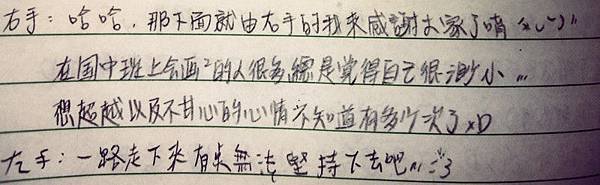 右手：哈哈，那下面就由右手的我來感謝大家了唷 *ˇ︶ˇ)"
在国中班上会画²的人很多總是覺得自己很渺小...
想超越以及不甘心的心情不知道有多少次了xD
左手：一路走下來有点無法堅持下去吧^^:3